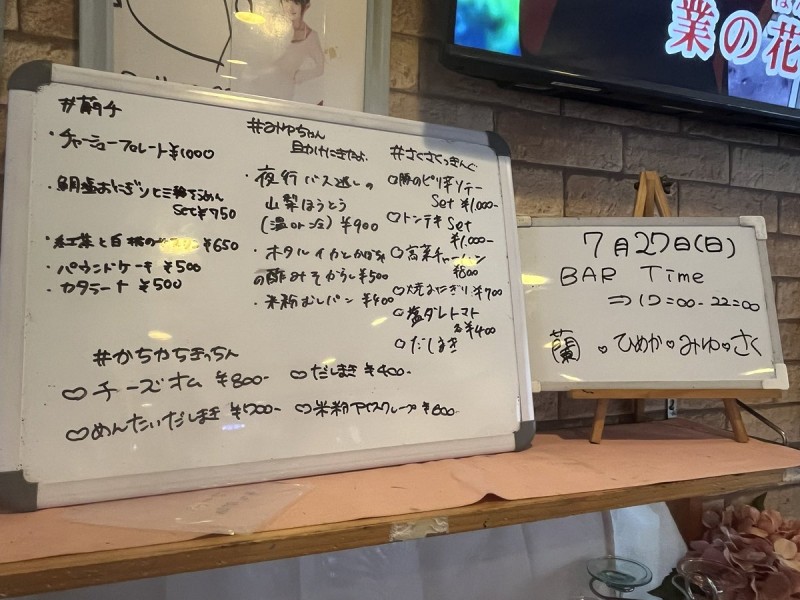 #蘭子
・チャーシュープレート ¥1000
・鯛塩おにぎり
Set ¥750
・紅茶と白桃の ¥650
・パウンドケーキ ¥500
・カタラーナ ¥500
#みゆちゃん
助けにきたよ
・夜行バス逃しの
山梨ほうとう
(温or冷) ¥900
・ホタルイカとわかめ
の酢みそからし ¥500
・米粉むしパン ¥400
#さくさくっきんぐ
○豚のピリ辛ソテー
Set ¥1.000-
○トンテキ Set
¥1.000-
○高菜チャーハン
¥800
○焼おにぎり ¥700
○塩ダレトマト
¥400
○だしまき
#かちゃかちゃきっちん
♡チーズオム ¥800-
♡だしまき ¥400-
♡めんたいだしまき ¥700-
♡米粉アイスクレープ ¥600-
7月27日(日)
BAR Time
⇒17=00-22=00
蘭 ♡ひめか♡みゆ♡さく
業の花